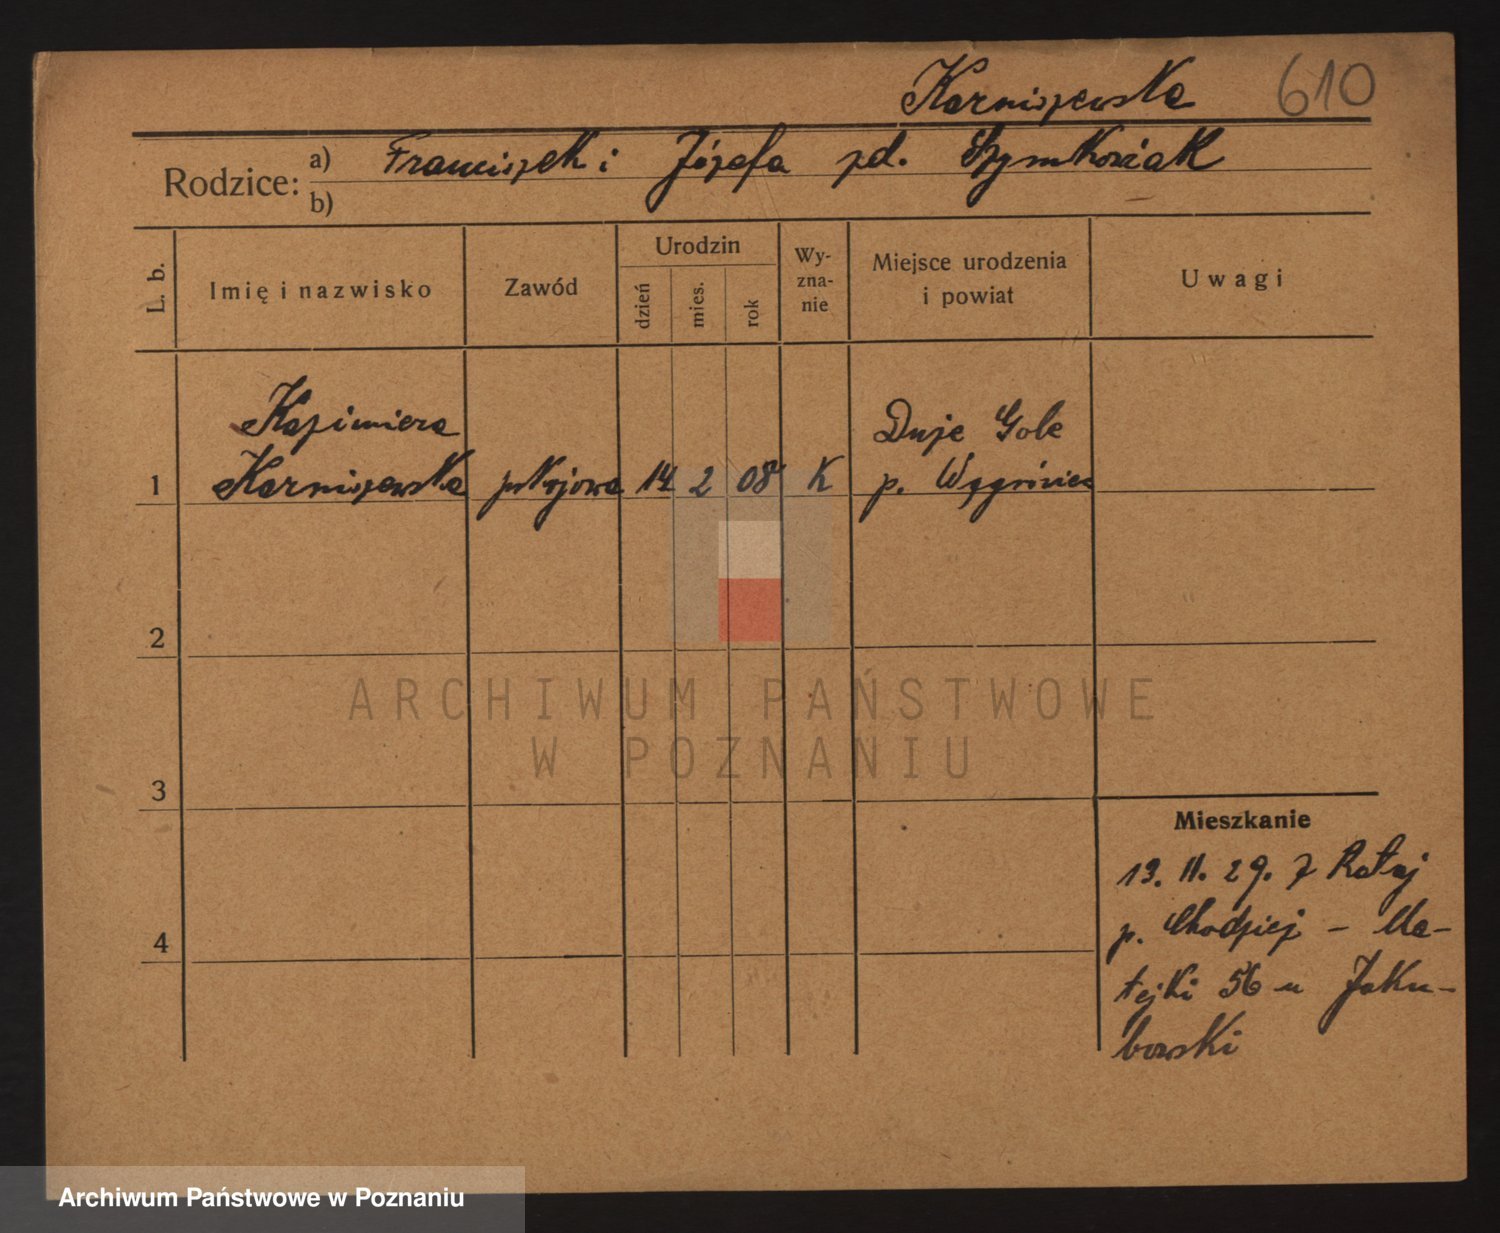 Karniszewska 610
Rodzice: a) Franciszek i Józefa zd. Szymkowiak
b)
L. b. Imię i nazwisko Zawód Urodzin dzień mies. rok Wyznanie Miejsce urodzenia i powiat Uwagi
Kazimiera Duże Gole
1 Karniszewska pokojowa 14 2 08 K p. Wągrówiec
2
ARCHIWUM PAŃSTWOWE
W POZNANIU
3
Mieszkanie
13. 11. 29. z Rataj
p. Chodzież – Ma-
4
tejki 56 u Jaku-
bowski
Archiwum Państwowe w Poznaniu